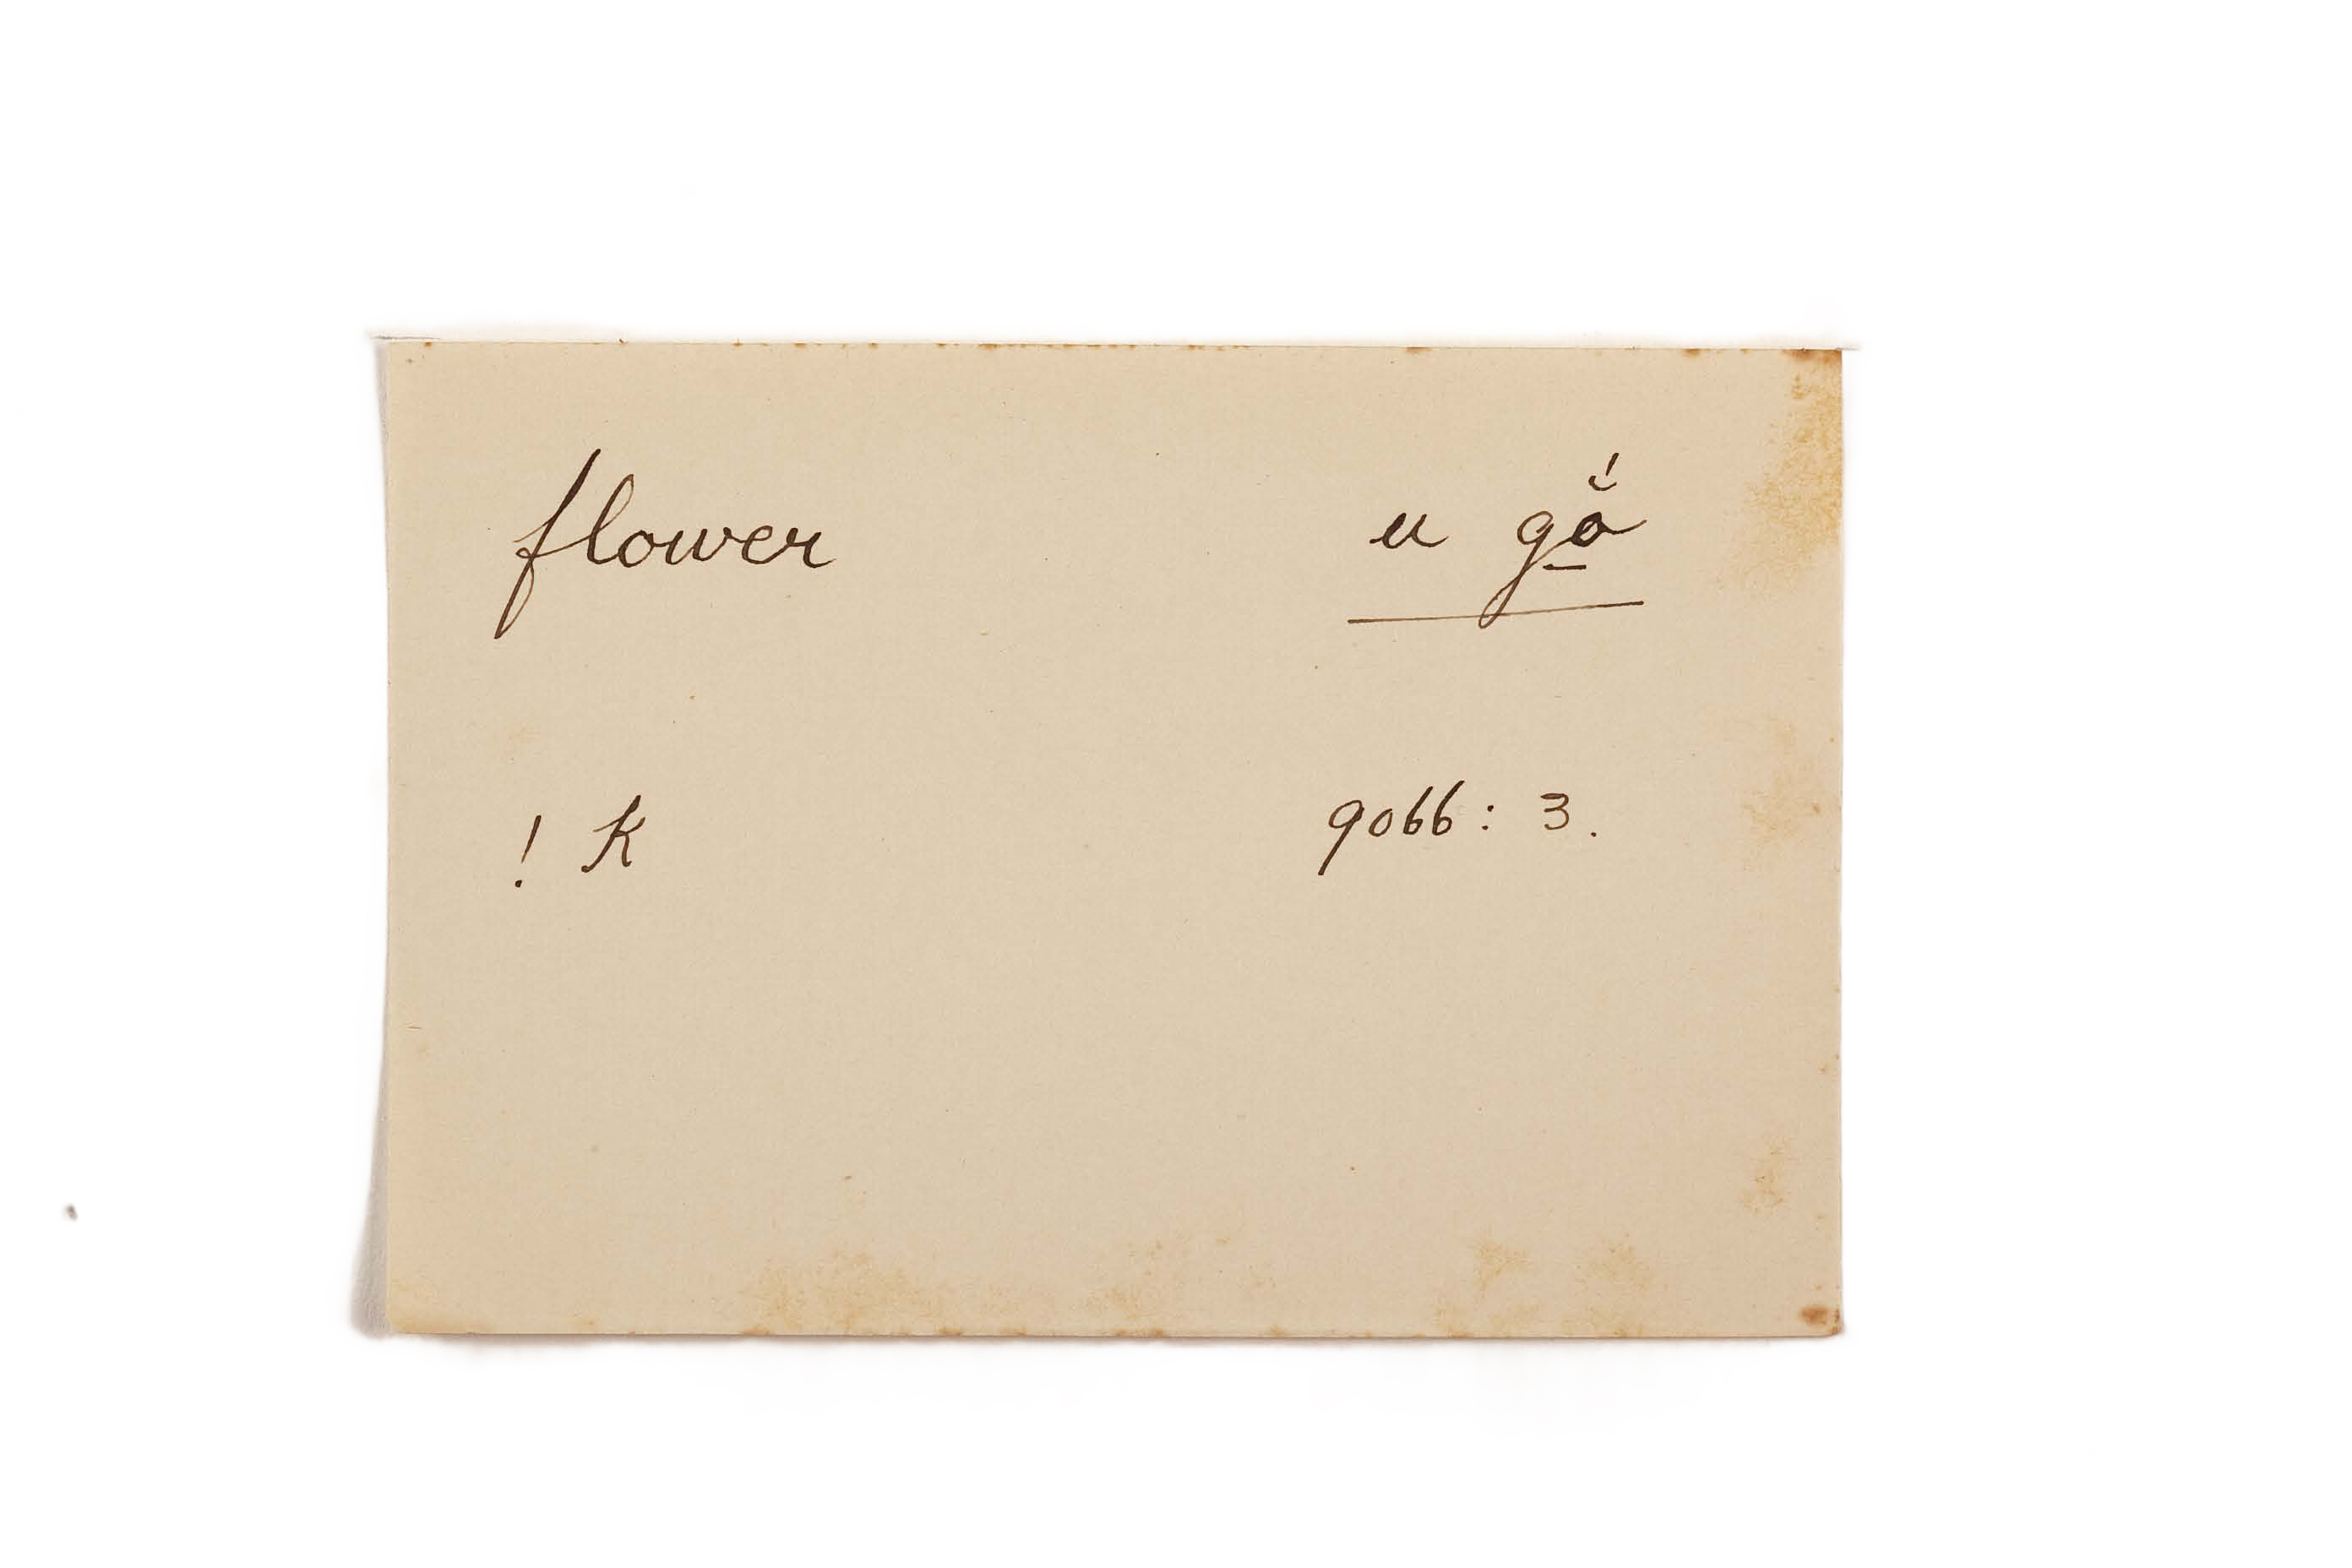 flower u gŏ̱́
! K 9066 : 3.